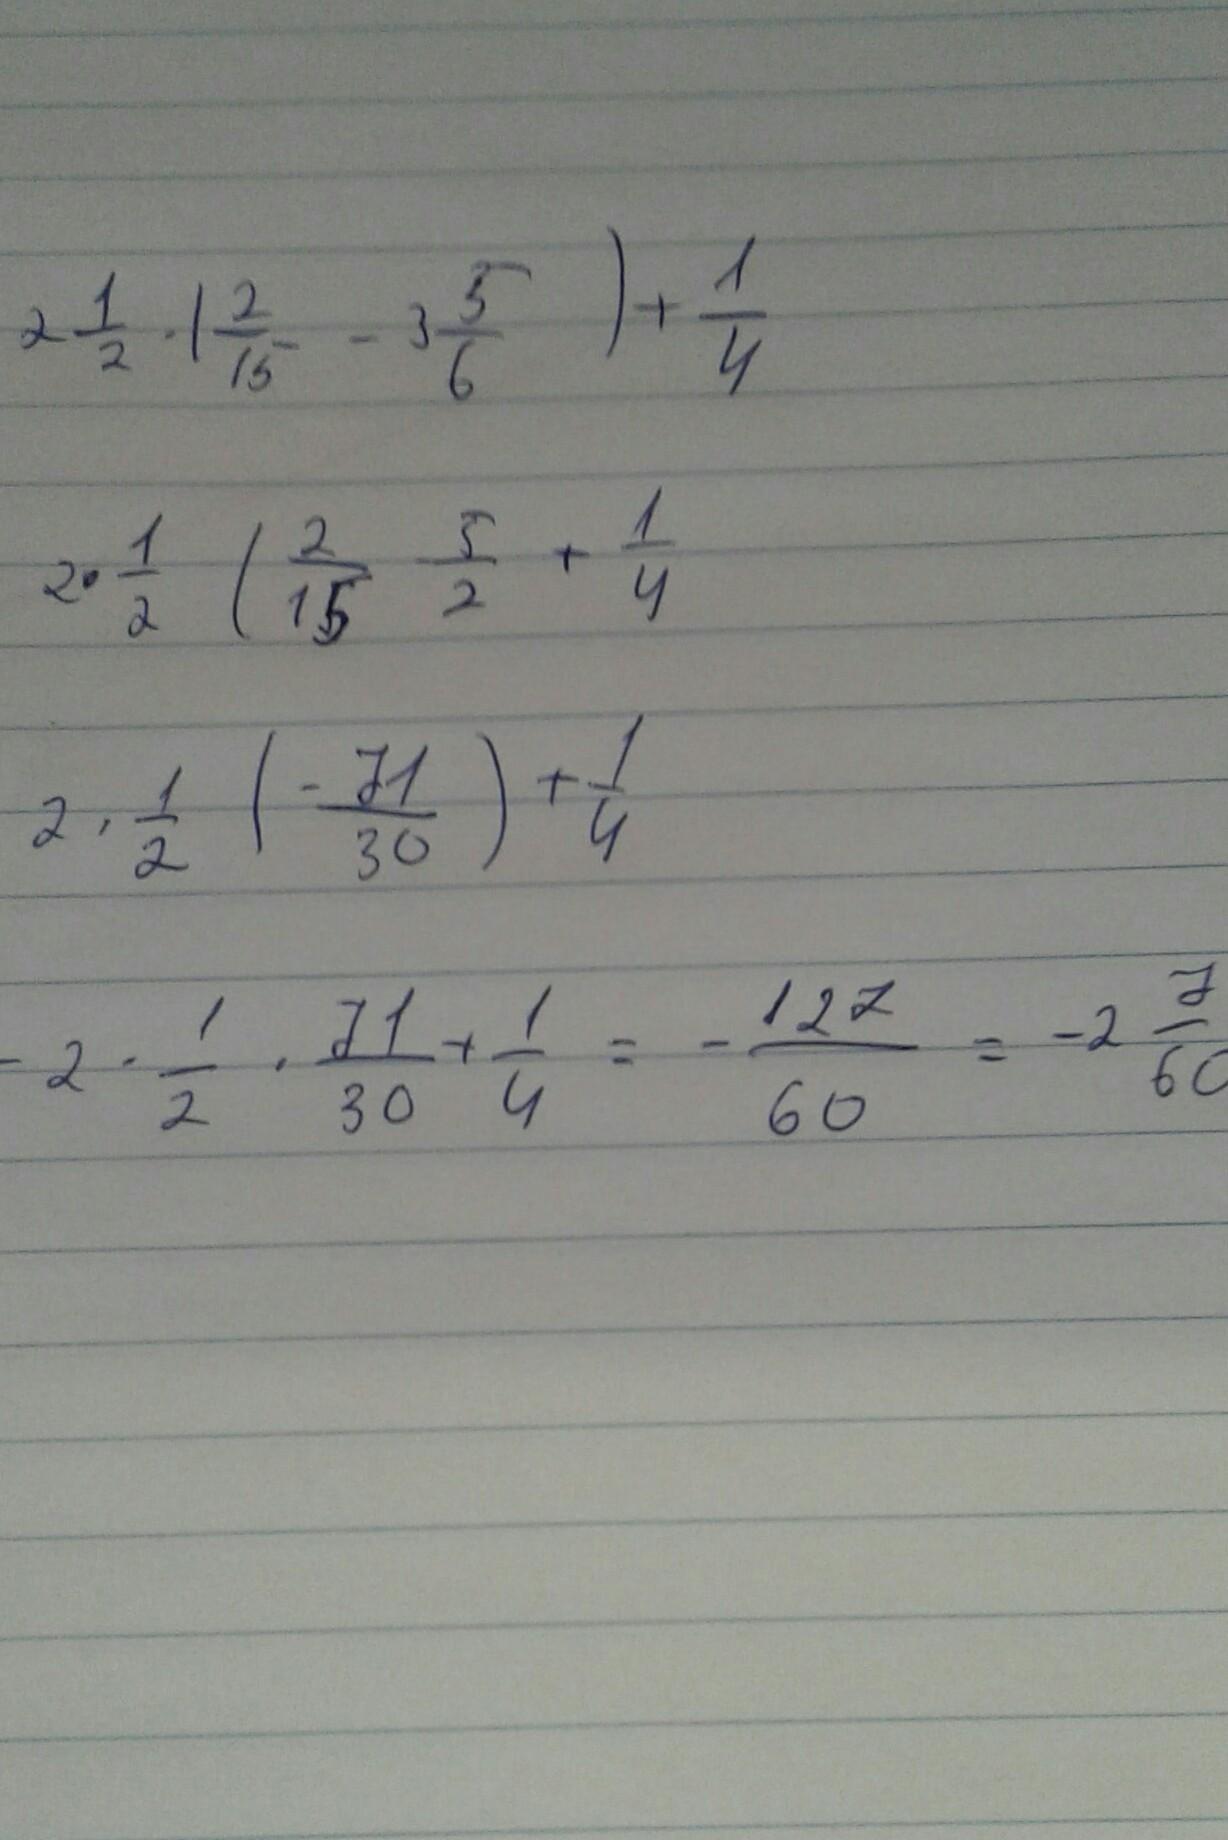 2 1/2 · ( 2/15 - 3 5/6 ) + 1/4
2 · 1/2 ( 2/15 - 5/2 + 1/4
2 · 1/2 ( - 71/30 ) + 1/4
- 2 · 1/2 · 71/30 + 1/4 = - 127/60 = - 2 7/60